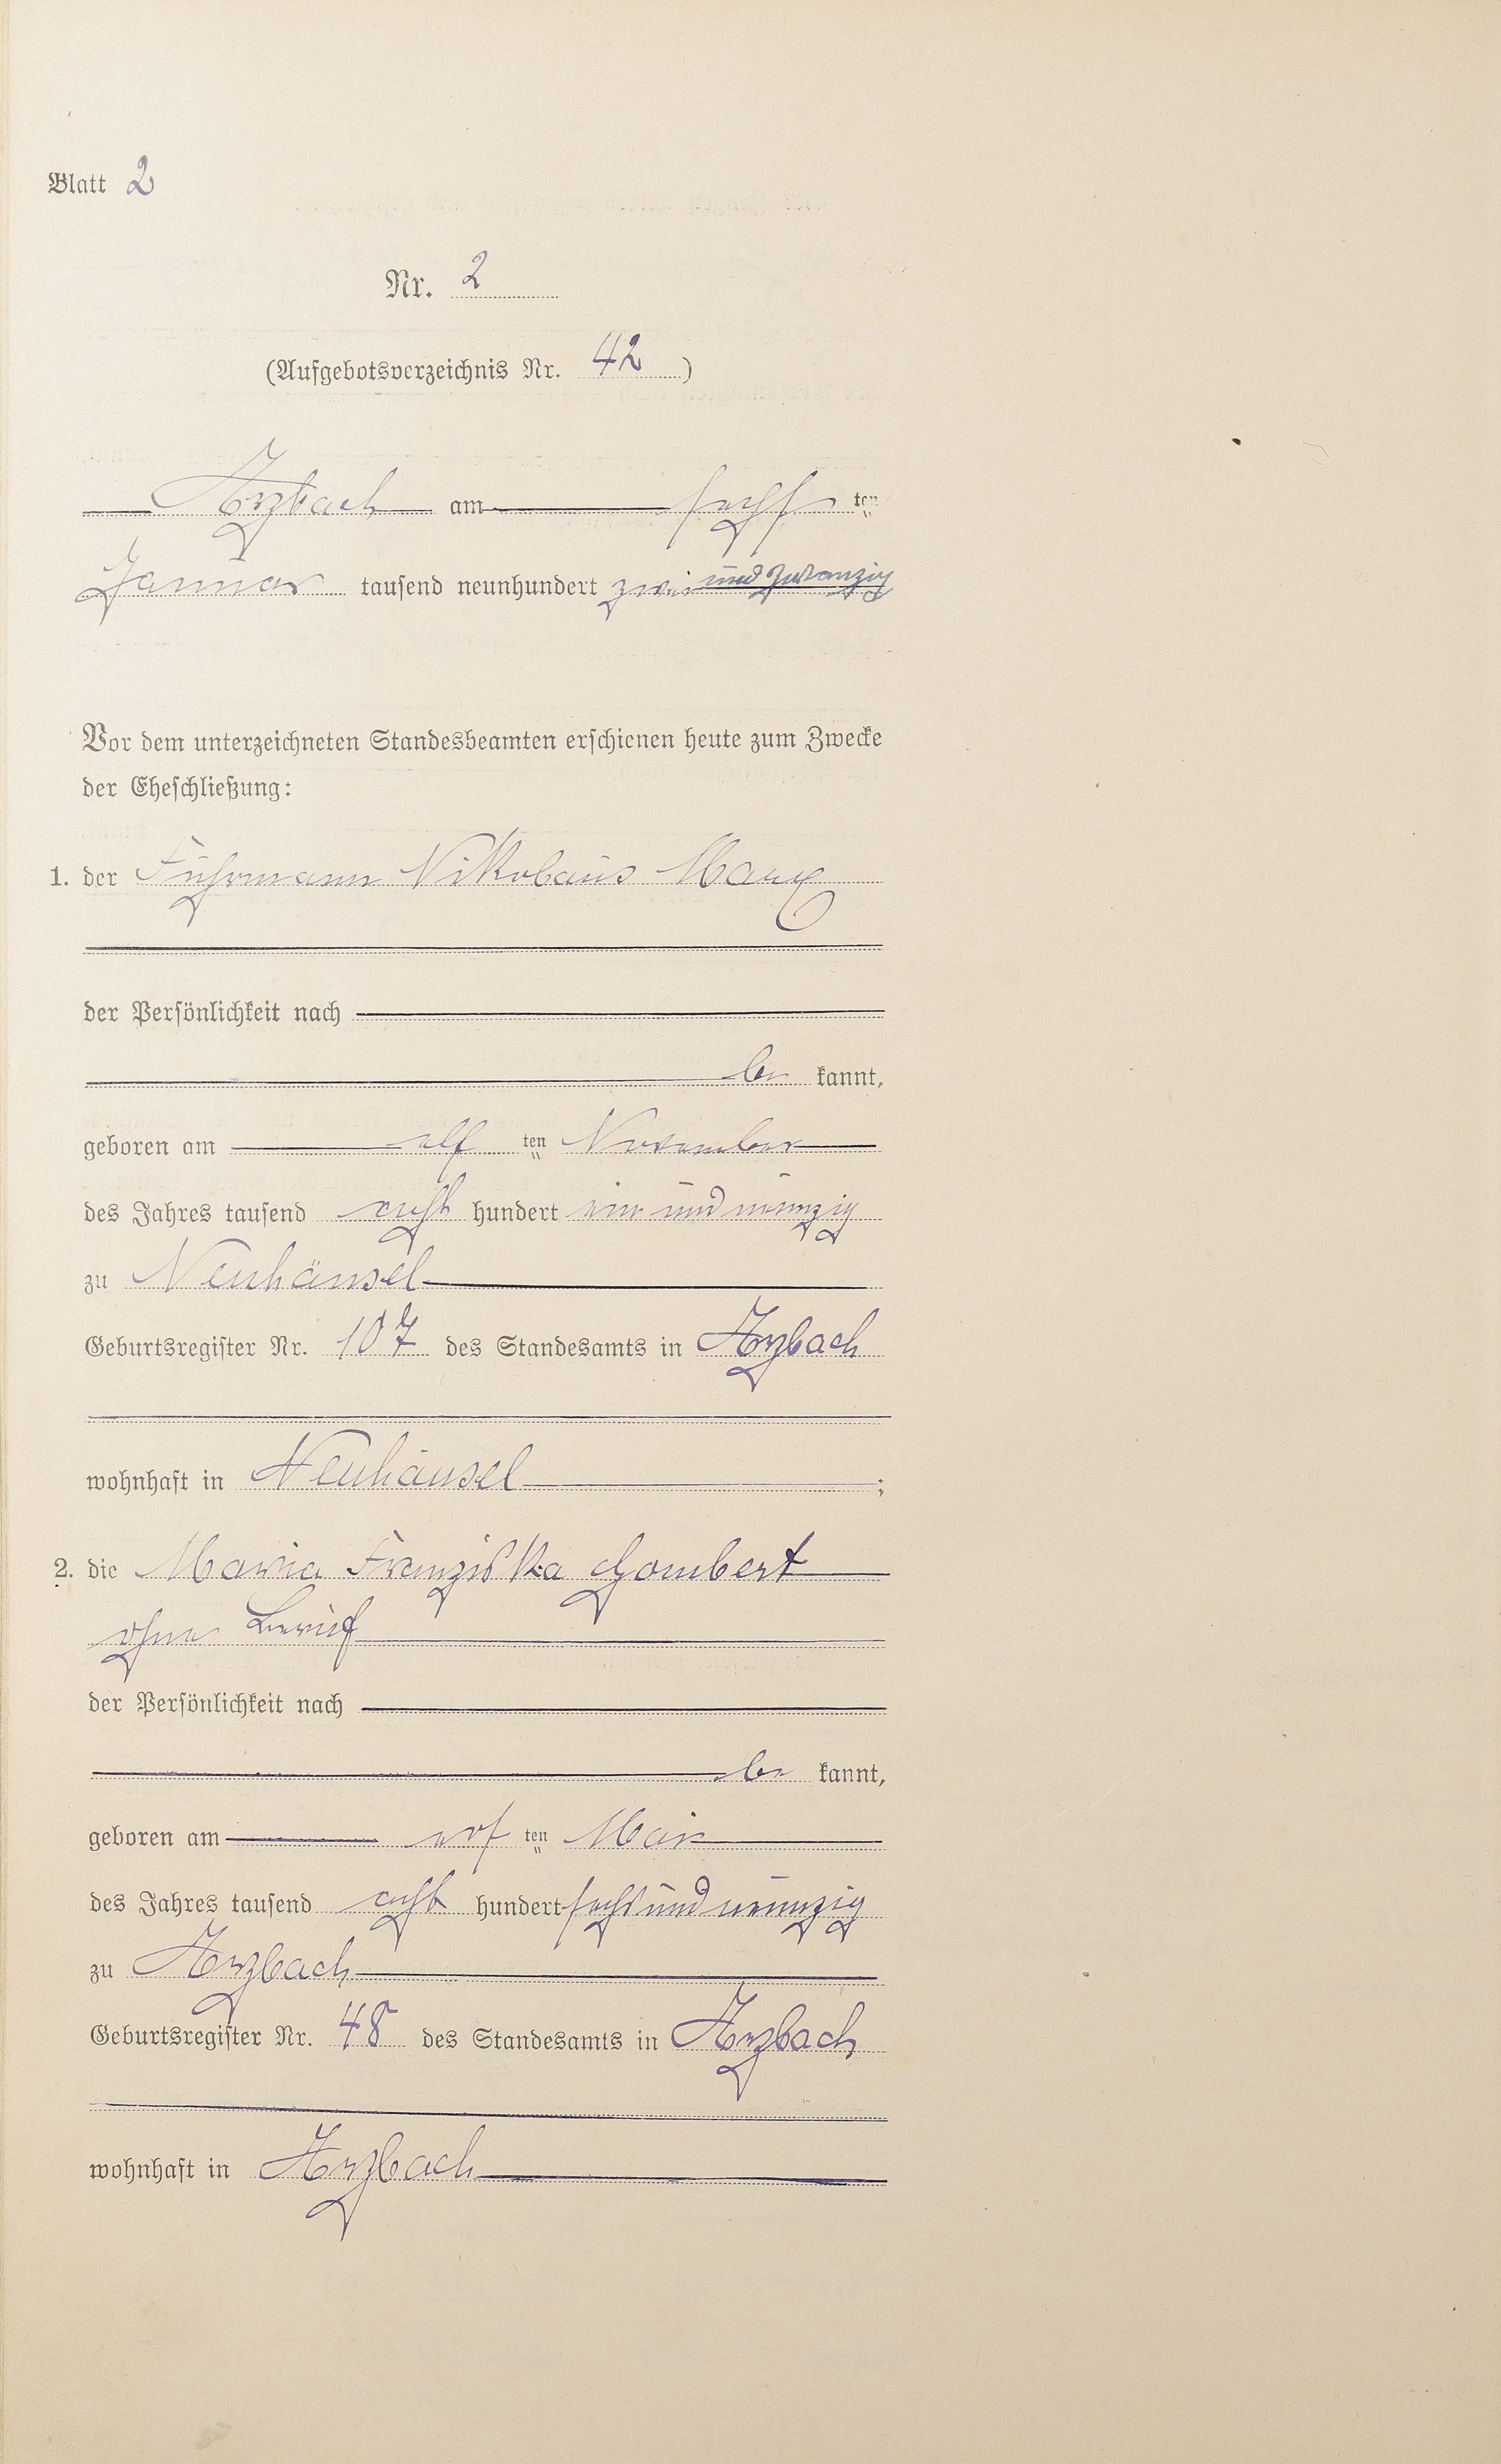 Blatt 2
Nr. 2
(Aufgebotsverzeichnis Nr. 42)
Arzbach am sechs ten
Januar tausend neunhundert zwei und zwanzig
Vor dem unterzeichneten Standesbeamten erschienen heute zum Zwecke
der Eheschließung:
1. der Fuhrmann Nikolaus Marx
der Persönlichkeit nach
be kannt,
geboren am elf ten November
des Jahres tausend acht hundert ein und neunzig
zu Neuhäusel
Geburtsregister Nr. 107 des Standesamts in Arzbach
wohnhaft in Neuhäusel;
2. die Maria Franziska Gombert
ohne Beruf
der Persönlichkeit nach
be kannt,
geboren am ten Mai
des Jahres tausend acht hundert sechs und neunzig
zu Arzbach
Geburtsregister Nr. 48 des Standesamts in Arzbach
wohnhaft in Arzbach